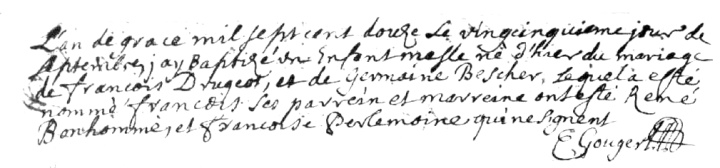 L'an de grace mil sept cent douze Le vingcinquieme jour de
septembre, j'ay Baptizé un Enfant masle né d'hier du mariage
de francois Drugeot, et de Germaine Bescher, Lequel a esté
nommé francois ses parrein et marreine ont esté René
Bonhomme, et francoise Perlemoine qui ne signent
E Gouger